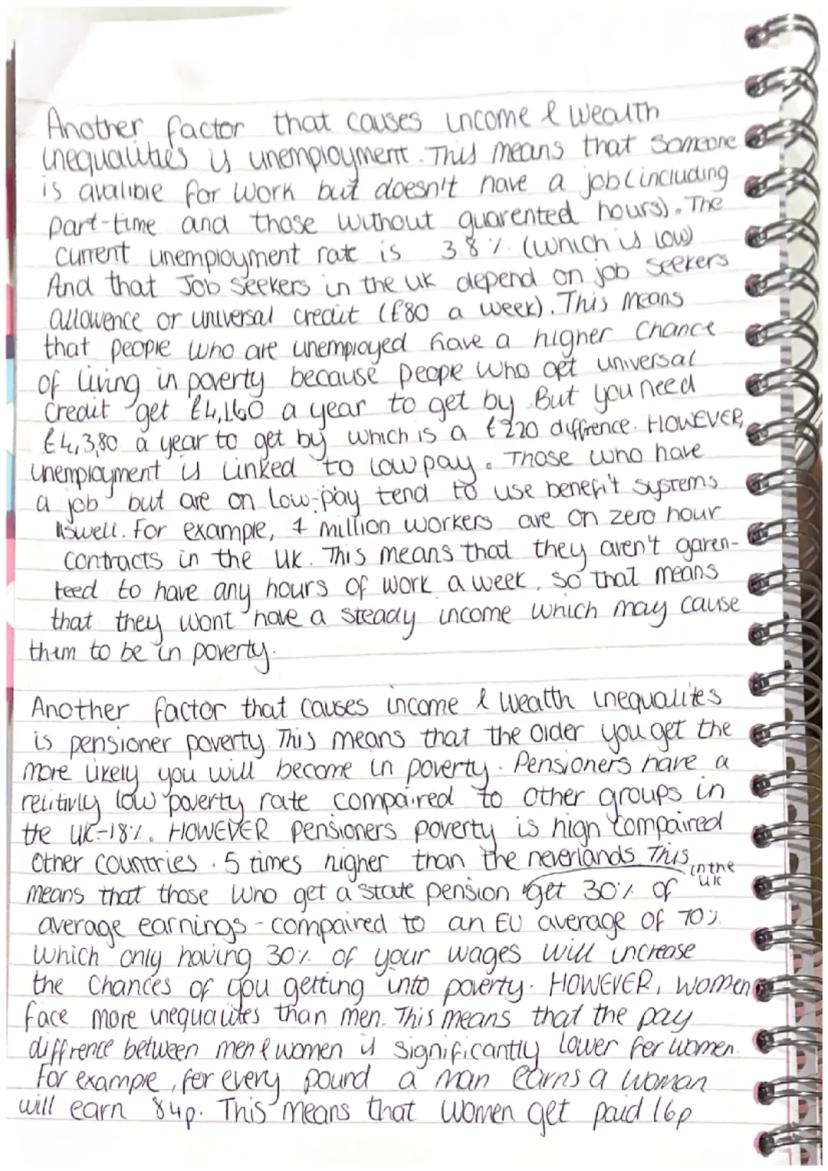 Another factor that causes income & wealth
inequalities is unemployment. This means that someone
is avalible for work but doesn't have a job (including
part-time and those without guarented hours). The
current unemployment rate is 3.8% (which is low)
And that Job seekers in the UK depend on job seekers
allowence or universal credit (£80 a week). This means
that people who are unemployed have a higher chance
of living in poverty because people who get universal
credit get £4,160 a year to get by. But you need
£4,380 a year to get by which is a £220 diffrence. HOWEVER,
unemployment is linked to low pay. Those who have
a job but are on low-pay tend to use benefit systems
aswell. For example, 1 million workers are on zero hour
contracts in the UK. This means that they aren't garen-
teed to have any hours of work a week, so that means
that they wont have a steady income which may cause
them to be in poverty.
Another factor that causes income & wealth inequalites
is pensioner poverty. This means that the older you get the
more likely you will become in poverty. Pensioners have a
relitivly low poverty rate compaired to other groups in
the UK-18%. HOWEVER pensioners poverty is high compaired
other countries. 5 times higher than the neverlands This
means that those who get a state pension in the UK get 30% of
average earnings - compaired to an EU average of 70%
which only having 30% of your wages will increase
the chances of you getting into poverty. HOWEVER, women
face more inequalites than men. This means that the pay
diffrence between men & women is significantly lower for women.
For example, for every pound a man earns a woman
will earn 84p. This means that women get paid 16p